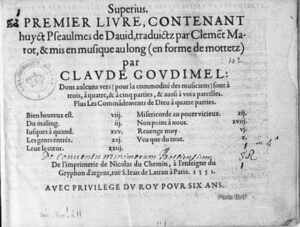 Superius.
PREMIER LIVRE, CONTENANT
huyct Pseaulmes de Dauid, traductz par Clemẽt Ma-
rot, & mis en musique au long (en forme de mottetz)
par
102
CLAVDE GOVDIMEL:
Dont aulcuns vers (pour la commodité des musiciens) sont à
trois, à quatre, & à cinq parties, & aussi à voix pareilles.
Plus Les Commãdements de Dieu à quatre parties.
Bien heureux est. viij. Misericorde au poure vicieux. xij.
Du maling. iij. Non point à nous. xviij.
Iusques à quand. xxv. Reuenge moy. vj.
Les gents entrés. xj. Veu que du tout. x.
Leue le cœur. xxiij.
De conventu minimorum
De l'imprimerie de Nicolas du Chemin, à l'enseigne du
Gryphon d'argent, rue S. Iean de Latran à Paris. 1551.
AVEC PRIVILEGE DV ROY POVR SIX ANS.